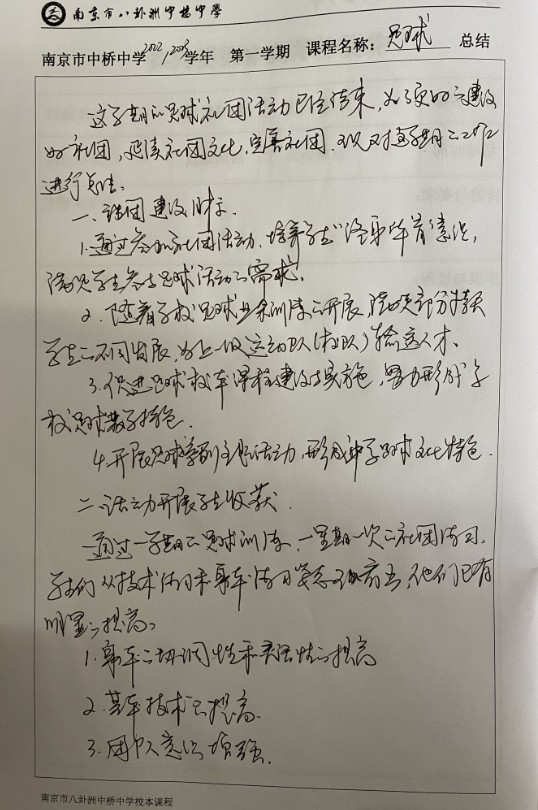 南京市八卦洲中桥中学
南京市中桥中学2022/2023学年 第一学期 课程名称：足球 总结
这学期的足球社团活动已经结束，为了更好的建设
好社团，延续社团文化，完善社团，现对本学期的工作
进行总结。
一、社团建设
1.通过参加社团活动，培养学生“终身体育”意识，
满足学生参与足球活动的需求。
2.随着学校足球业余训练的开展，满足部分特长
学生的不同发展，为上一级运动队(校队)输送人才。
3.促进足球校本课程建设与实施，努力形成学
校足球教学特色.
4.开展足球系列主题活动，形成中学足球文化特色.
二、活动开展学生收获
通过一学期的足球训练，一星期一次的社团活动，
学生们从技术
明显的提高。
1.身体的协调性和灵活性的提高
2.基本技术的提高.
3.团队意识增强.
南京市八卦洲中桥中学校本课程